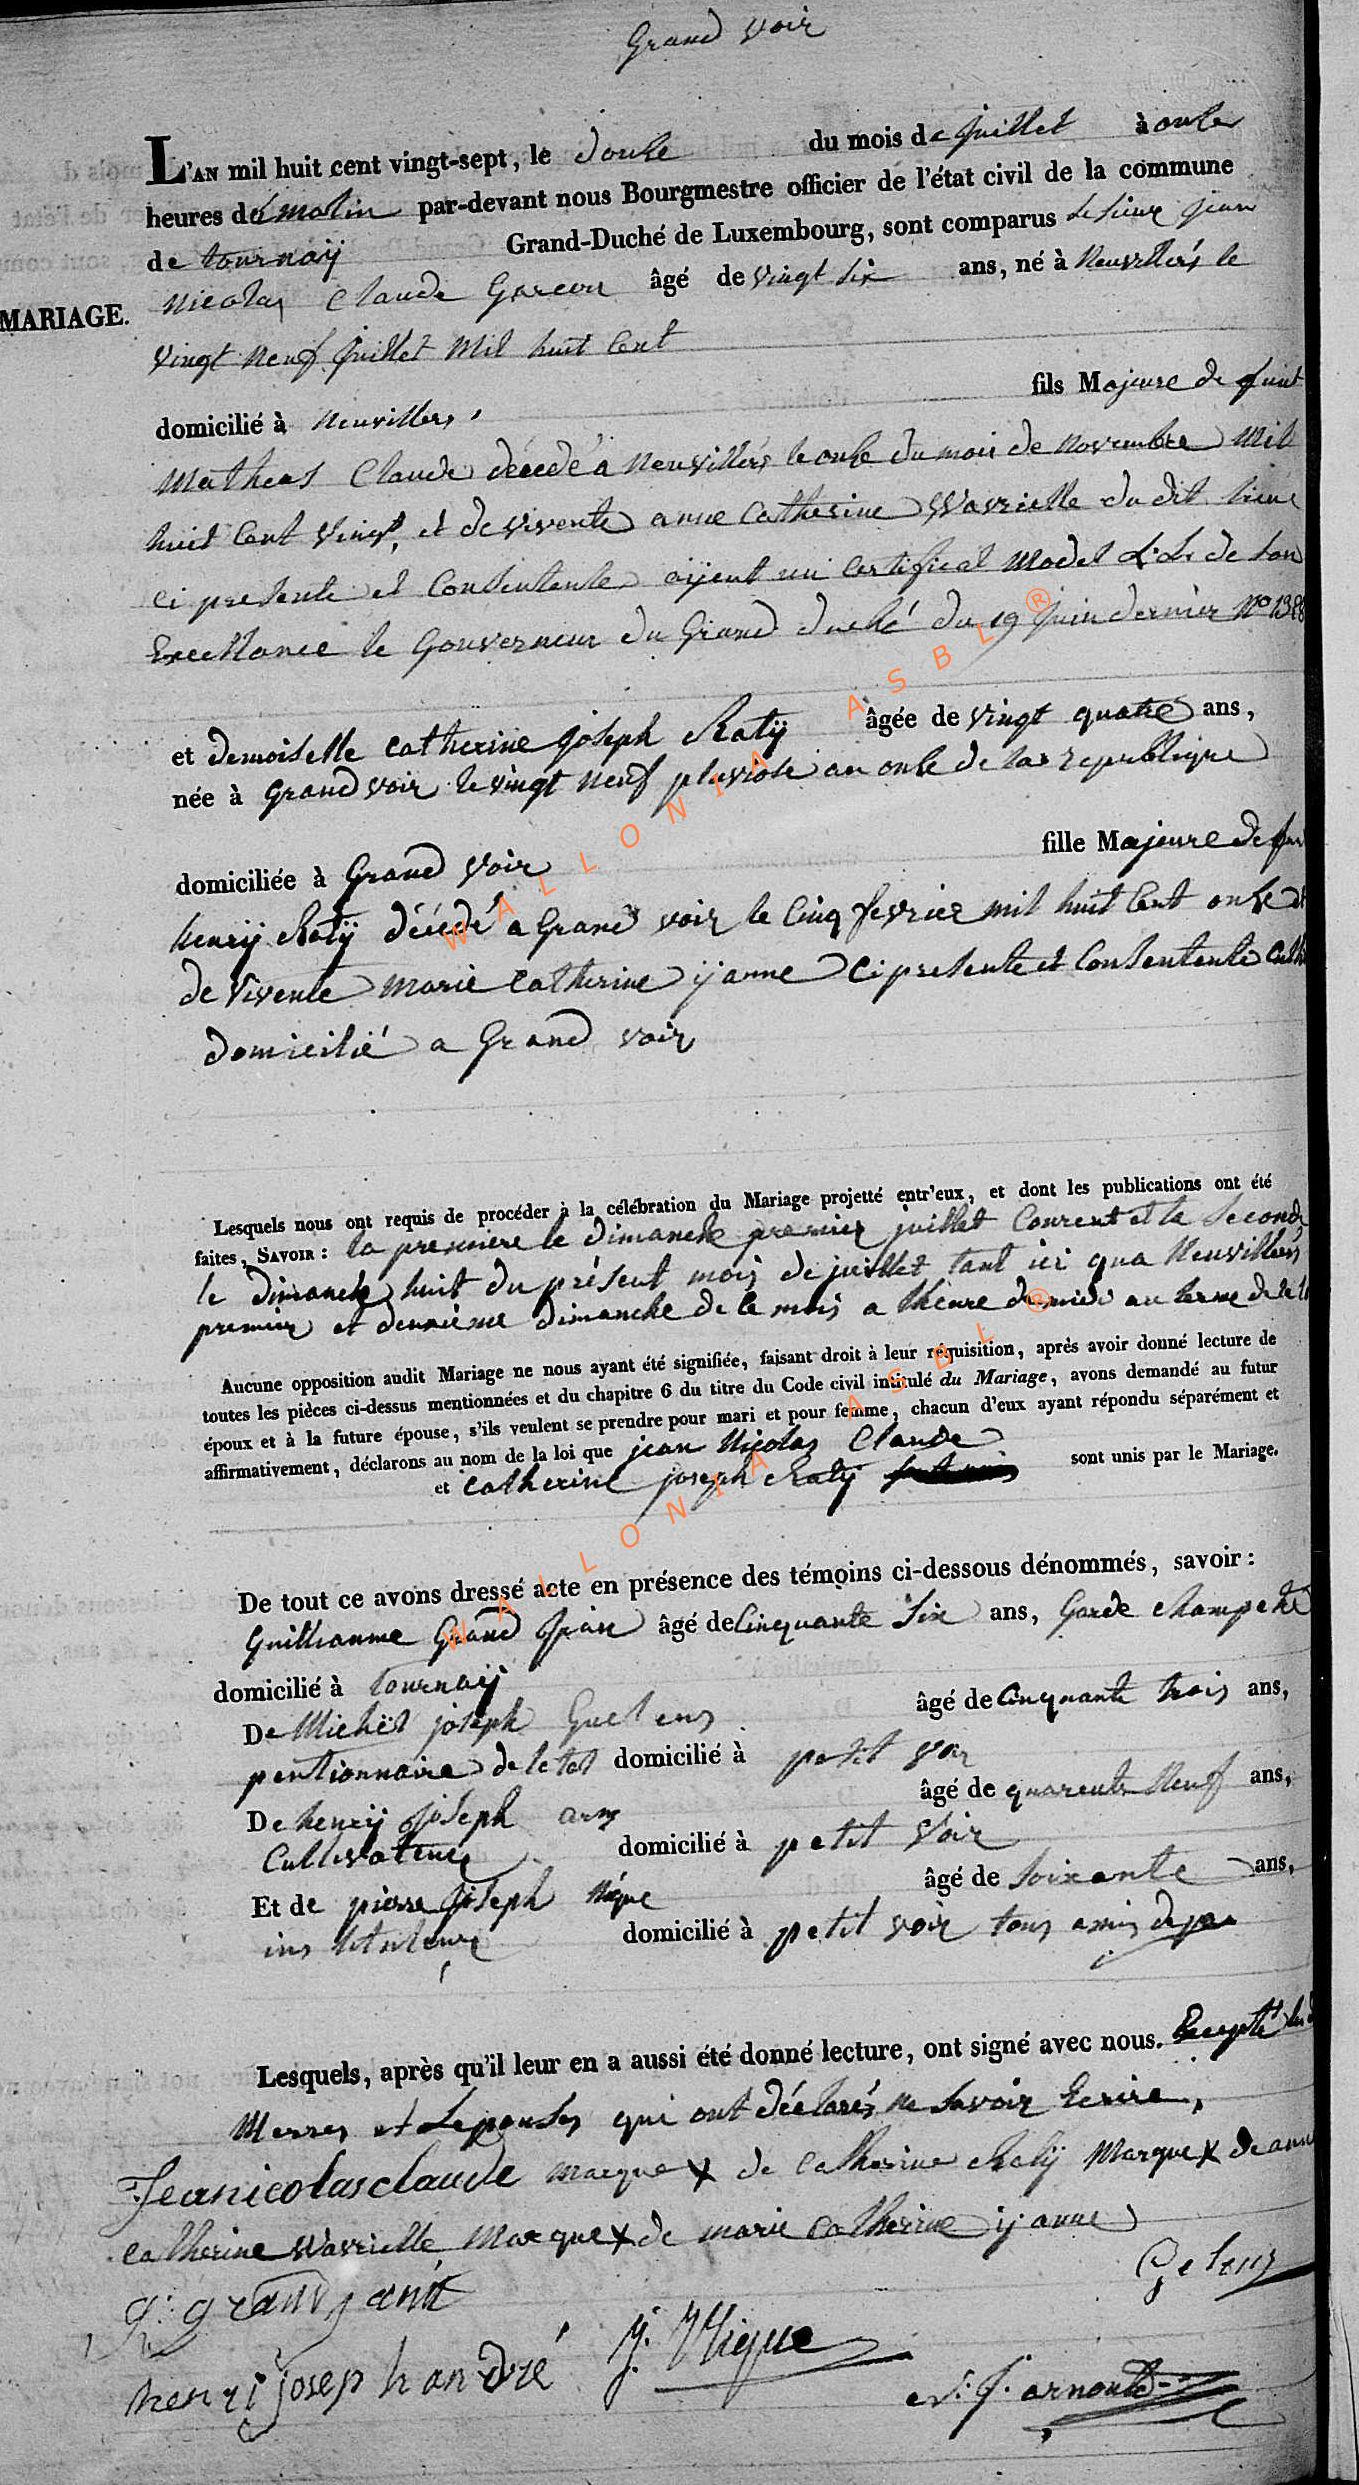 Grand voir
L'AN mil huit cent vingt-sept, le douze du mois de juillet à onze
heures du matin par-devant nous Bourgmestre officier de l'état civil de la commune
de tournaÿ Grand-Duché de Luxembourg, sont comparus le sieur jean
nicolas Claude Garcon âgé de vingt six ans, né à Neuvillers le
MARIAGE.
vingt neuf juillet Mil huit Cent
fils Majeure de
domicilié à Neuvillers,
Matheas Claude décédé a Neuvillers le onze du mois de Novembre Mil
huit Cent vingt, et de vivente anne Catherine Wavrielle du dit lieue
ci presente et Consentente aÿent un Certificat Model L: L: de son
Excellance le Gouverneur du Grand duché du 19 juin dernier No
et demoiselle Catherine joseph Ratÿ âgée de vingt quatre ans,
née à Grand voir le vingt neuf pluviose an onze de la republique
fille Majeure de
domiciliée à Grand voir
henrÿ Ratÿ décédé a Grand voir le Cinq fevrier mil huit Cent onze et
de vivente Marie Catherine ÿanne Ci presente et Consentente
domicilié a Grand voir
Lesquels nous ont requis de procéder à la célébration du Mariage projetté entr'eux, et dont les publications ont été
faites, SAVOIR : la premiere le dimanche premier juillet Courent et la Seconde
le dimanche huit du présent mois de juillet tant ici qua Neuvillers
premier et deuxième dimanche de ce mois a l'heure de midi au terme de la
Aucune opposition audit Mariage ne nous ayant été signifiée, faisant droit à leur réquisition, après avoir donné lecture de
toutes les pièces ci-dessus mentionnées et du chapitre 6 du titre du Code civil intitulé du Mariage, avons demandé au futur
époux et à la future épouse, s'ils veulent se prendre pour mari et pour femme, chacun d'eux ayant répondu séparément et
affirmativement, déclarons au nom de la loi que jean Nicolas Claude
et Catherine joseph Ratÿ sont unis par le Mariage.
De tout ce avons dressé acte en présence des témoins ci-dessous dénommés, savoir :
Guilliaume Grand jean âgé de Cinquante Six ans, Garde Champetre
domicilié à Tournaÿ
De Michel joseph âgé de Cinquante trois ans,
pentionnaire de letat domicilié à petit voir
De henrÿ joseph âgé de quarente Neuf ans,
Cultivateur domicilié à petit voir
Et de pierre joseph Nique âgé de Soixante ans,
instituteur domicilié à petit voir tous amis
Lesquels, après qu'il leur en a aussi été donné lecture, ont signé avec nous. Excepté les
Merres et Lepouses qui ont déclarés ne savoir Ecrire,
Jeanicolasclaude marque X de Catherine Ratÿ Marque X de anne
Catherine Wavrielle Marque X de marie Catherine ÿanne
g: grandjean
henri joseph andré
j. Nique
arnould
WALLONIA ASBL ®
WALLONIA ASBL ®